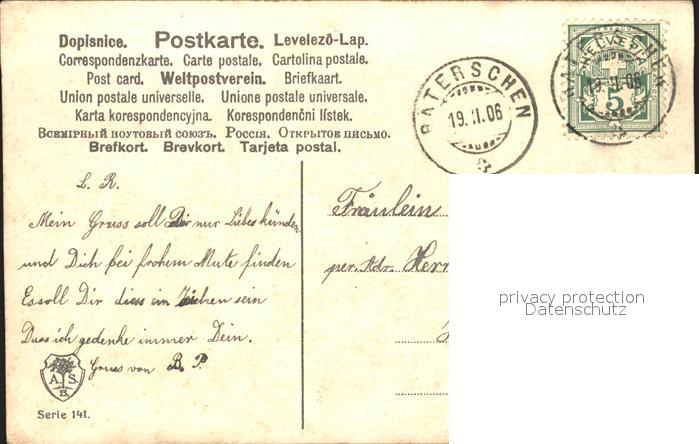 Dopisnice. Postkarte. Levelező-Lap.
Correspondenzkarte. Carte postale. Cartolina postale.
Post card. Weltpostverein. Briefkaart.
Union postale universelle. Unione postale universale.
Karta korespondencyjna. Korespondenčni lístek.
Всемірный поутовый союзъ. Россія. Открытое письмо.
Brefkort. Brevkort. Tarjeta postal.
RÄTERSCHEN
19.II.06
HELVETIA
5
L. R.
Mein Gruss soll Dir nur Liebes künden
und Dich bei frohem Mute finden
Es soll Dir dies ein Zeichen sein
Dass ich gedenke immer Dein.
Gruss von B. P.
Fräulein
per. Adr. Herr
privacy protection
Datenschutz
A. S.
B.
Serie 141.